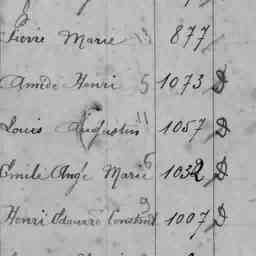 Pierre Marie 13 877
Amédé Henri 5 1073 D
Louis Augustin 11 1057 D
Emile Ange Marie 6 1032 D
Henri Edouard Constant 9 1007 D